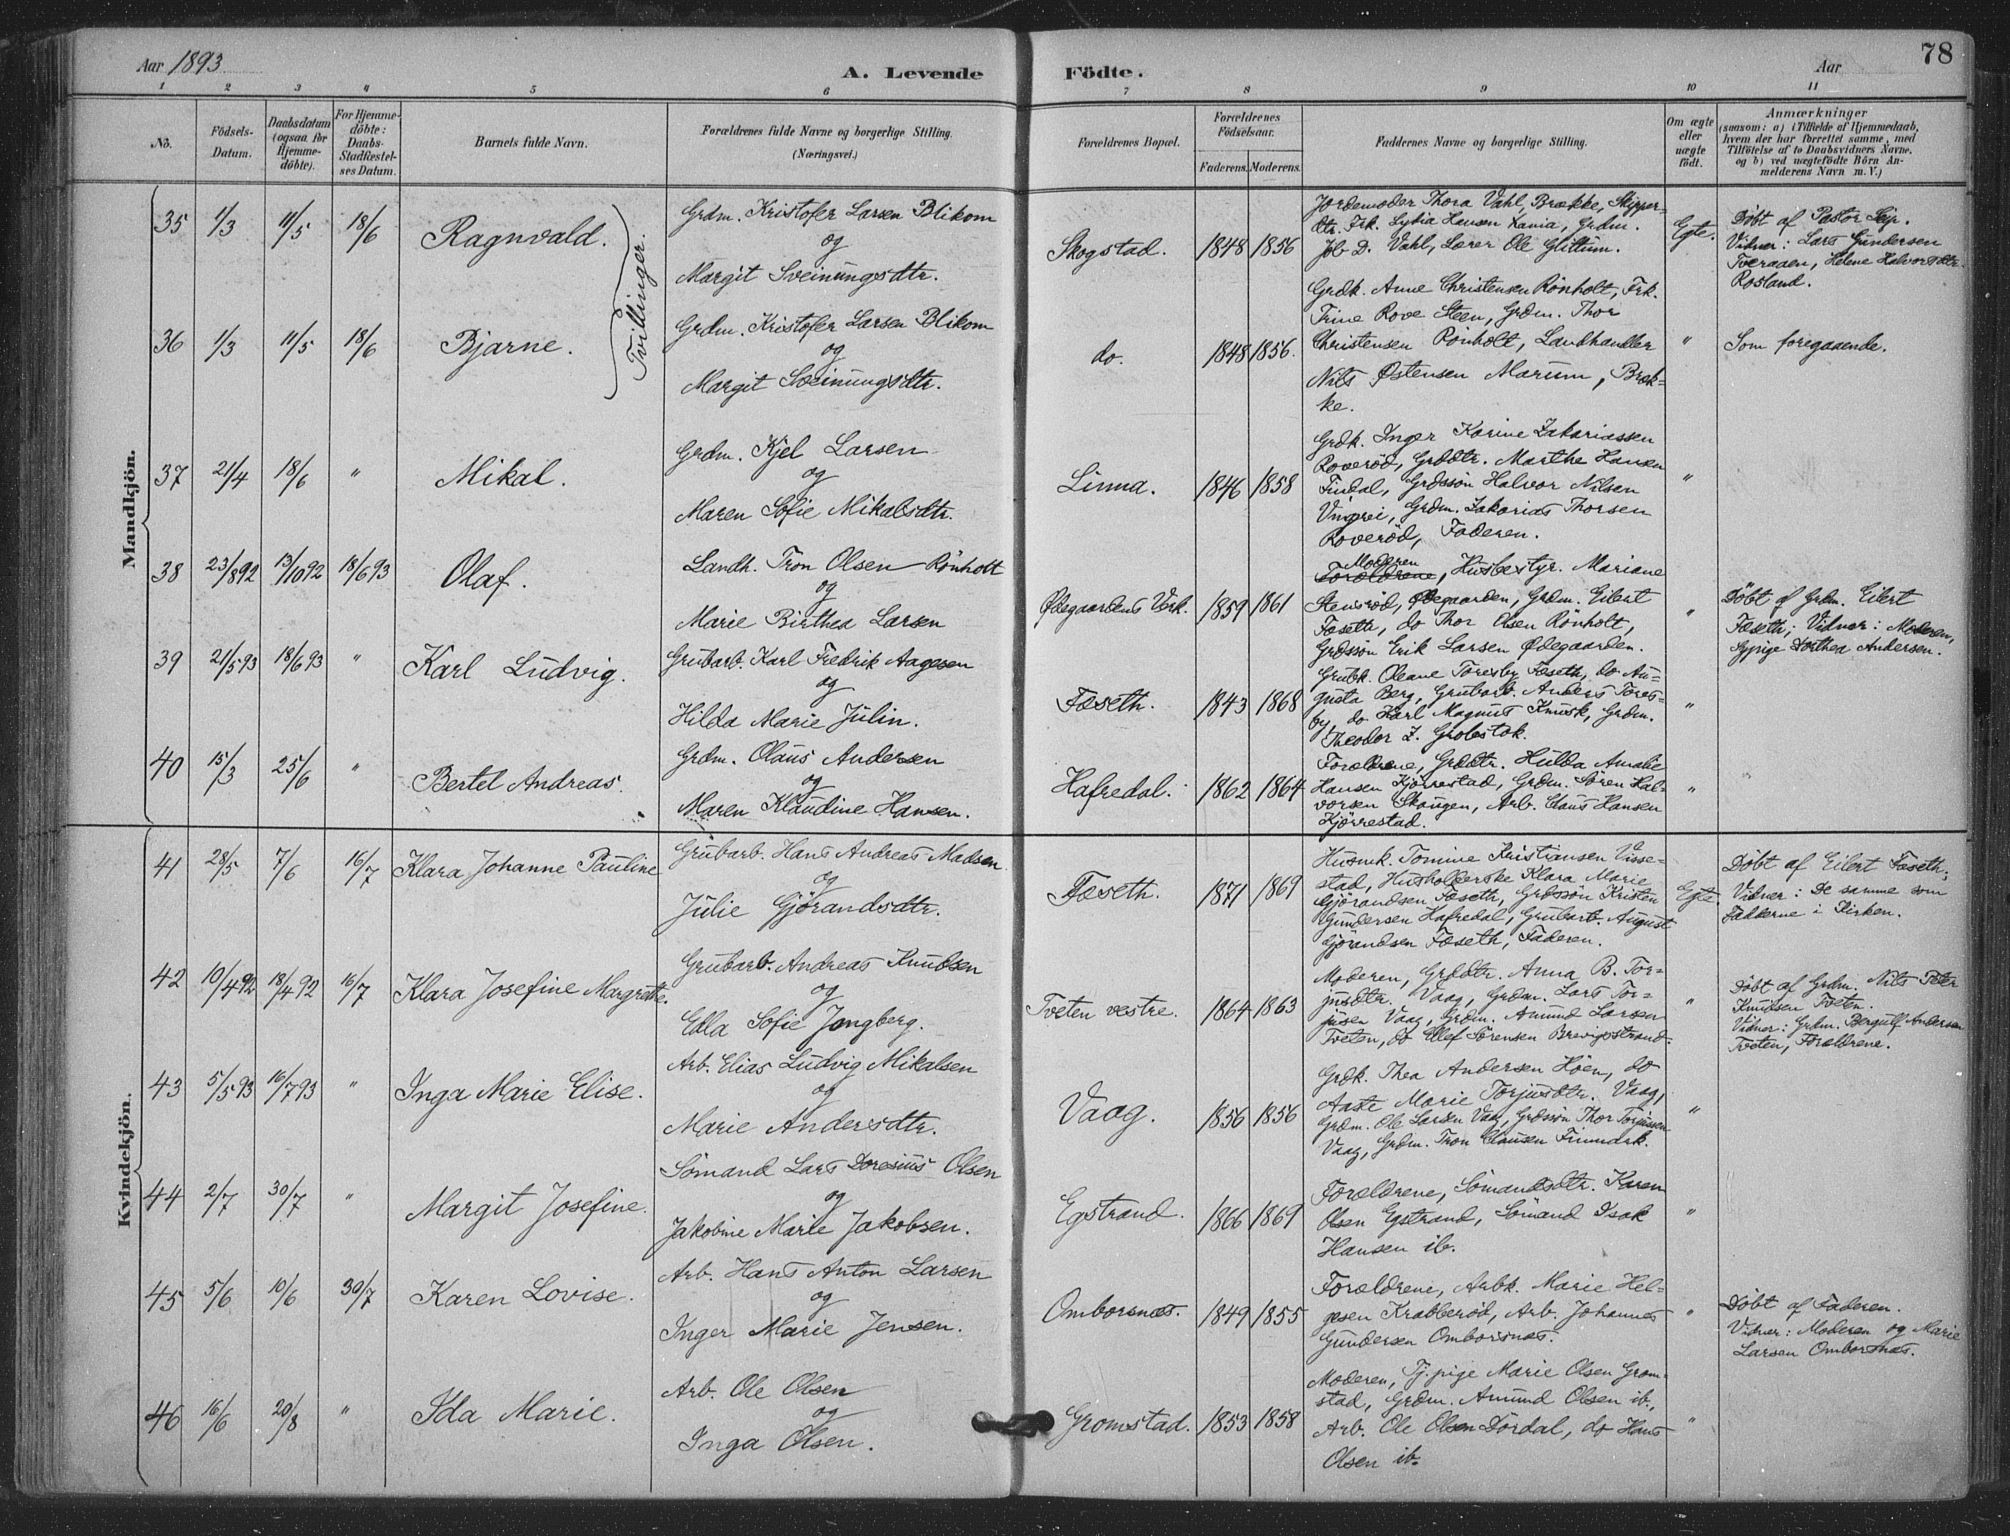 Aar 1893
A. Levende Födte.
Aar
78
1 2 3 4 5 6 7 8 9 10 11
No.
Födsels-Datum.
Daabsdatum (ogsaa for Hjemmedöbte).
For Hjemmedöbte: Daabs-Stadfæstelses Datum.
Barnets fulde Navn.
Forældrenes fulde Navne og borgerlige Stilling. (Næringsvei.)
Forældrenes Bopæl.
Forældrenes Födselsaar.
Faderens. Moderens.
Faddernes Navne og borgerlige Stilling.
Om ægte eller uægte födt.
Anmærkninger
(saasom: a) i Tilfælde af Hjemmedaab, hvem der har forrettet samme, med Tilföielse af to Daabsvidners Navne. og b) ved uægtefödte Börn Anmelderens Navn m. V.)
Mandkjön.
35 1/3 11/5 18/6 Ragnvald.
Tvillinger.
Grdm. Kristofer Larsen Blikom
og
Margit Sveinungsdtr.
Skogstad. 1848 1856
Jordemoder Thora Vahl, Brække, Skipper-
dtr. Frk. Lydia Hansen , Grdm.
Job D. Vahl, Lærer Ole Glittum.
Egte.
Döbt af Pastor
Vidner: Lars Gundersen
Tveraaen, Helene Halvorsdtr.
Rosland.
36 1/3 11/5 18/6 Bjarne.
Grdm. Kristofer Larsen Blikom
og
Margit Sveinungsdtr.
do. 1848 1856.
Grdk. Anne Christensen Rönholt, Frk.
Trine Rove Steen, Grdm. Thor
Christensen Rönholt, Landhandler
Nils Østensen Marum, Bræk-
ke.
" Som foregaaende.
37 21/4 18/6 " Mikal.
Grdm. Kjel Larsen
og
Maren Sofie Mikalsdtr.
Linna. 1846 1858
Grdk. Inger Karine Zakariassen
Roveröd, Grddtr. Marthe Hansen
Findal, Grdssön Halvor Nilsen
, Grdm. Zakarias Thorsen
Roveröd, Faderen.
"
38 23/8 92 13/10 92 18/6 93 Olaf.
Landh. Tron Olsen Rönholt
og
Marie Birthea Larsen
Ødegaardens Verk. 1859 1861
Moderen
Forældrene, Husbestyr. Mariane
Stensröd, Ødegaarden, Grdm. Eilert
Fæseth, do Thor Olsen Rönholt,
Grdssön Erik Larsen Ødegaarden.
"
Döbt af Grdm. Eilert
Fæseth; Vidner: Moderen,
Sypige Dorthea Andersen.
39 21/5 93 18/6 93 " Karl Ludvig.
Grubarb. Karl Fredrik Aagesen
og
Hilda Marie Julin.
Fæseth. 1843 1868
Grubk. Oleane Toresby Fæseth, do Au-
gusta Berg, Grubarb. Anders Tores-
by, do Karl Magnus Knusk, Grdm.
Theodor Z. Grobstok.
"
40 15/3 25/6 " Bertel Andreas.
Grdm. Olaus Andersen
og
Maren Klaudine Hansen.
Hafredal. 1862 1864
Forældrene, Grddtr. Hulda Amalie
Hansen Kjörrestad, Grdm. Sören Hal-
vorsen Skougen, Arb. Claus Hansen
Kjörrestad.
"
Kvindekjön.
41 28/5 7/6 16/7 Klara Johanne Pauline
Grubarb. Hans Andreas Madsen
og
Julie Gjörandsdtr.
Fæseth. 1871 1869
Husmk. Tomine Kristiansen Visse-
stad, Husholderske Klara Marie
Gjörandsen Fæseth, Grdssön Kristen
Gundersen Hafredal, Grubarb. August
Gjörandsen Fæseth, Faderen.
Egte.
Döbt af Eilert Fæseth;
Vidner: De samme som
Fadderne i Kirken.
42 10/4 92 18/4 92 16/7 Klara Josefine Margrethe.
Grubarb. Andreas Knudsen
og
Edla Sofie Jongberg.
Tveten vestre. 1864 1863
Moderen, Grddtr. Anna B. Tor-
jusdtr. Vaag, Grdm. Lars Tor-
jusen Vaag, Grdm. Amund Larsen
Tveten, do Ellef Sörensen Brevigstrand.
"
Döbt af Grdm. Nils Peter
Knudsen Tveten.
Vidner: Grdm. Bergulf Andersen
Tveten, Forældrene.
43 5/5 93 16/7 93 " Inga Marie Elise.
Arb. Elias Ludvig Mikalsen
og
Marie Andersdtr.
Vaag. 1856 1856
Grdk. Thea Andersen Höen, do
Aaste Marie Torjusdtr. Vaag,
Grdm. Ole Larsen Vaag, Grdssön Thor Torjussen
Vaag, Grdm. Tron Clausen Finmark.
"
44 2/7 30/7 " Margit Josefine.
Sömand Lars Doresius Olsen
og
Jakobine Marie Jakobsen.
Egstrand. 1866 1869
Forældrene, Sömandsdtr. Karen
Olsen Egstrand, Sömand Isak
Hansen ib.
"
45 5/6 10/6 30/7 Karen Lovise.
Arb. Hans Anton Larsen
og
Inger Marie Jensen.
Omborsnæs. 1849 1855
Forældrene, Arbk. Marie Hel-
gesen Krabberöd, Arb. Johannes
Gundersen Omborsnæs.
"
Döbt af Faderen.
Vidner: Moderen og Marie
Larsen Omborsnæs.
46 16/6 20/8 " Ida Marie.
Arb. Ole Olsen
og
Inga Olsen.
Gromstad. 1853 1858
Moderen, Tj.pige Marie Olsen Grom-
stad, Grdm. Amund Olsen ib.,
Arb. Ole Olsen Dördal, do Hans
Olsen ib.
"